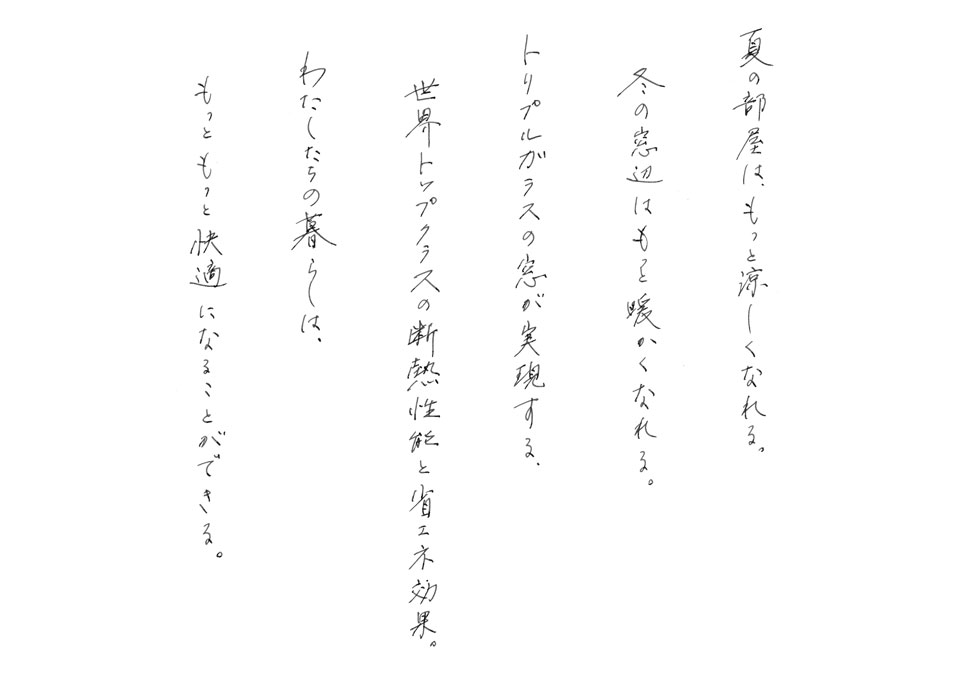 夏の部屋は、もっと涼しくなれる。
冬の窓辺はもっと暖かくなれる。
トリプルガラスの窓が実現する、
世界トップクラスの断熱性能と省エネ効果。
わたしたちの暮らしは、
もっともっと快適になることができる。